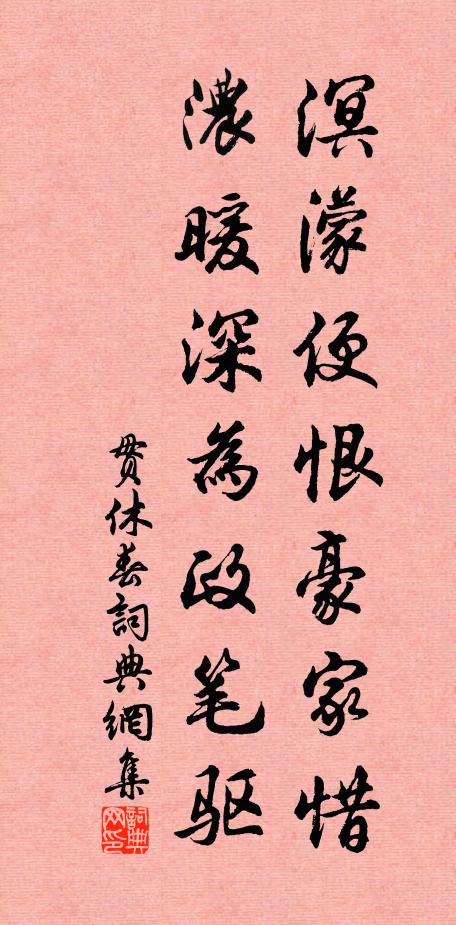 溟濛便恨豪家惜
濃暖深為政笔驱
贯休春詞典網集
詞典网印